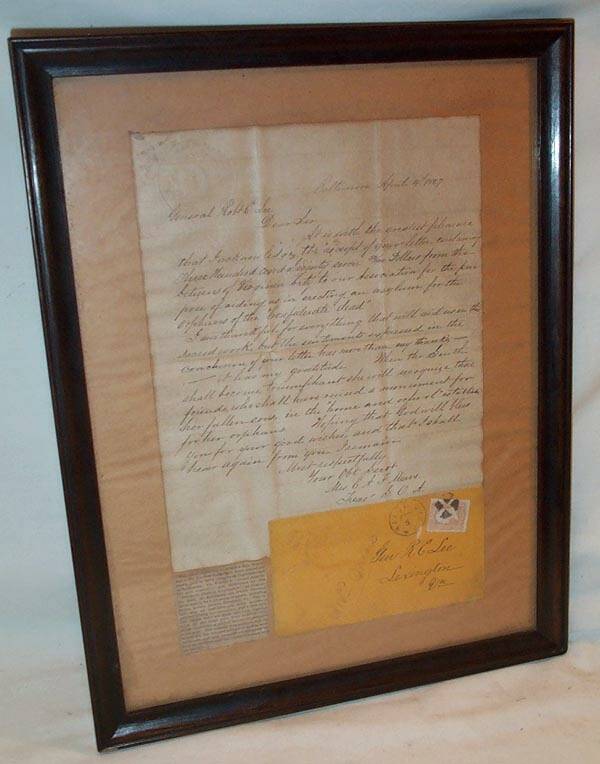 Baltimore April 4th 1867
General Robt E Lee
Dear Sir
It is with the greatest pleasure
that I acknowledge the receipt of your letter containing
Three Hundred and seventy seven Dollars from the
Citizens of to our Association for the pur
pose of aiding us in erecting an asylum for the
orphans of the "Confederate dead"
I am thankful for everything that will aid us in the
sacred work, but the sentiments expressed in the
conclusion of your letter has more than my thanks—
— it has my gratitude. When the South
shall become triumphant she will recognize that
friends who shall have raised a monument for
her fallen sons, in the home and school establish
for her orphans. Hoping that God will bless
you for your good wishes and that I shall
hear again from you I remain
Most respectfully
Your Obt Servt
Mrs
Gen R E Lee
Lexington
Va